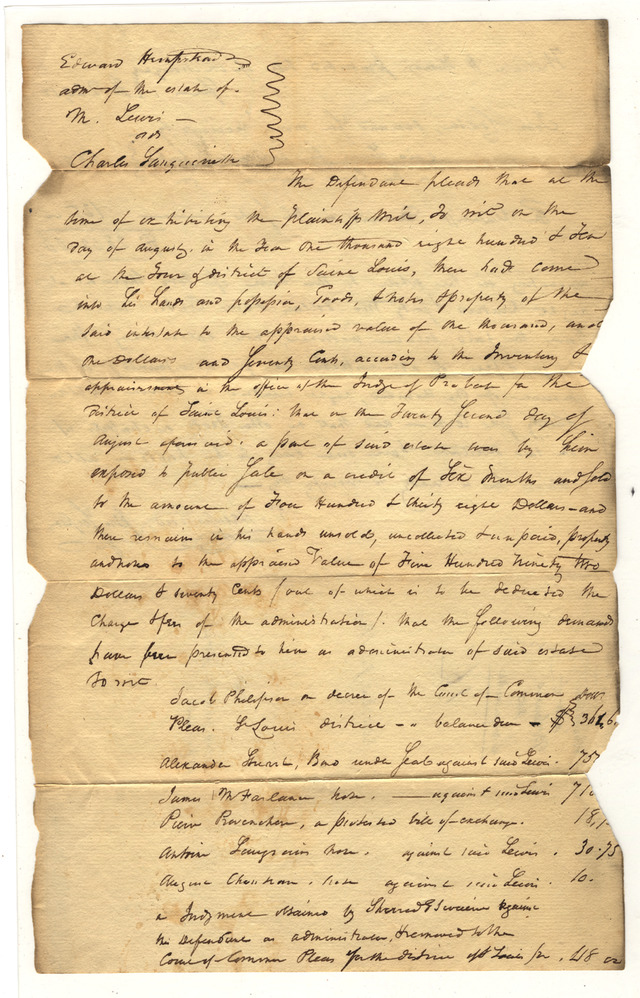 Edward Hempstead
admr of the estate of
M. Lewis —
ads
Charles Sanguinette
The Defendant pleads that at the
time of exhibiting the plaintiffs Writ, To wit on the
day of august. in the Year One thousand eight hundred & Ten
at the Town & district of Saint Louis, there hath come
into his hands and possession, Goods, & notes & property of the
said intestate to the appraised value of one thousand, and
one Dollars and Seventy Cents, according to the Inventory &
appraisement in the office of the Judge of Probate for the
District of Saint Louis: that on the Twenty Second day of
August aforesaid. a part of said estate was by him
exposed to public Sale on a credit of Six Months and sold
to the amount of Four Hundred & thirty eight Dollars — and
there remains in his hands unsold, uncollected & unpaid, property
and notes to the appraised Value of Five Hundred Ninety two
Dollars & seventy Cents (out of which is to be deducted the
Charge of the administration). that the following demands
have been presented to him as administrator of said estate
To wit
Jacob Philipson on decree of the Court of Common
Pleas. St Louis district — a balance due — $
Alexander Stuart, Bond under Seal against said Lewis. 75
James McFarlane Note. — against said Lewis 71
Pierre Provenchere, a protested bill of exchange. 18,
Antoine Saugrains Note. against said Lewis. 30.75
August Chouteau. Note against said Lewis. 10.
a Judgment obtained by against
the Defendant as administrator, & removed to the
Court of Common Pleas for the district of St Louis for . 48